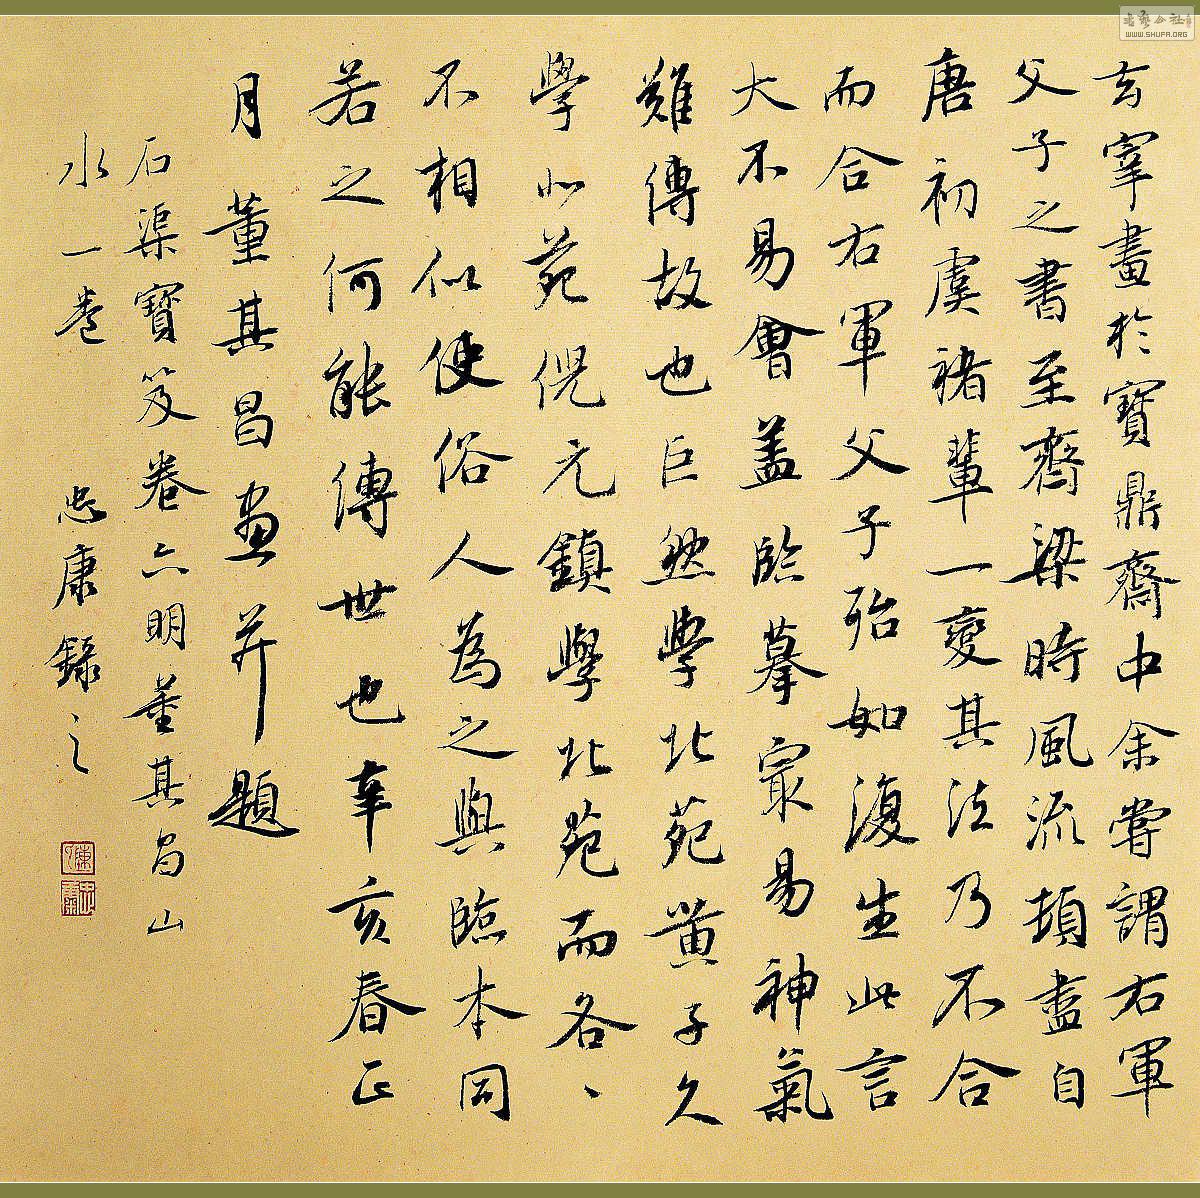 玄宰畫於寶鼎齋中余嘗謂右軍
父子之書至齊梁時風流頓盡自
唐初虞褚輩一變其法乃不合
而合右軍父子殆如復生此言
大不易會蓋臨摹最易神氣
難傳故也巨然學北苑黃子久
學北苑倪元鎮學北苑而各、
不相似使俗人為之與臨本同
若之何能傳世也辛亥春正
月董其昌畫并題
石渠寶笈卷六明董其昌山
水一卷 忠康錄之
陳 忠康
書藝公社
WWW.SHUFA.ORG